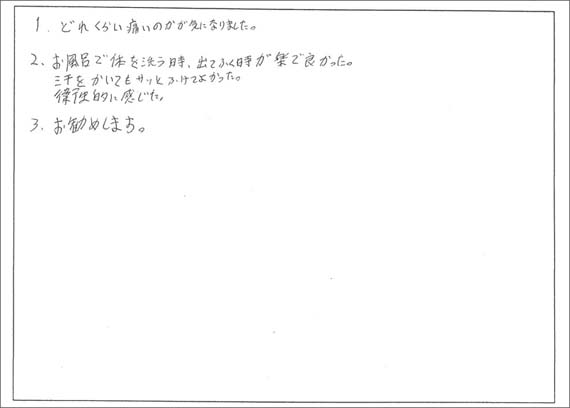 1. どれくらい痛いのかが気になりました。
2. お風呂で体を洗う時、出てふく時が楽で良かった。
汗をかいてもサッとふけてよかった。
衛生的に感じた。
3. お勧めします。